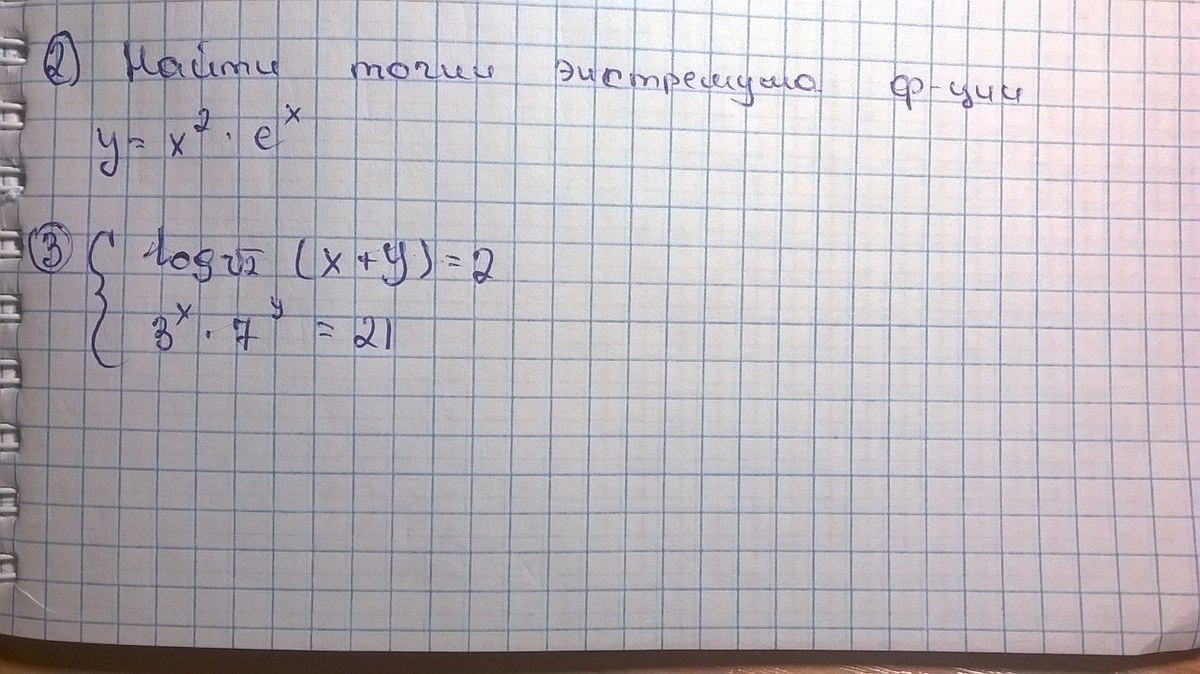 2) Найти точки экстремума ф-ции
y = x² · eˣ
3) { log√2 (x + y) = 2
3ˣ · 7ʸ = 21